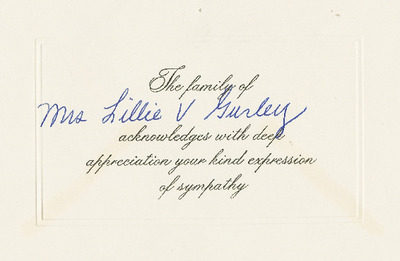 The family of
Mrs Lillie V Gurley
acknowledges with deep
appreciation your kind expression
of sympathy